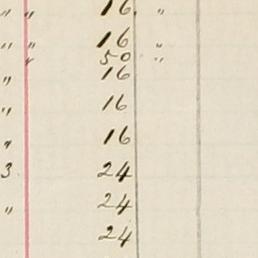 " " 16 "
" " 16 "
" 50 "
" 16
" 16
" 16
3 24
" 24
24